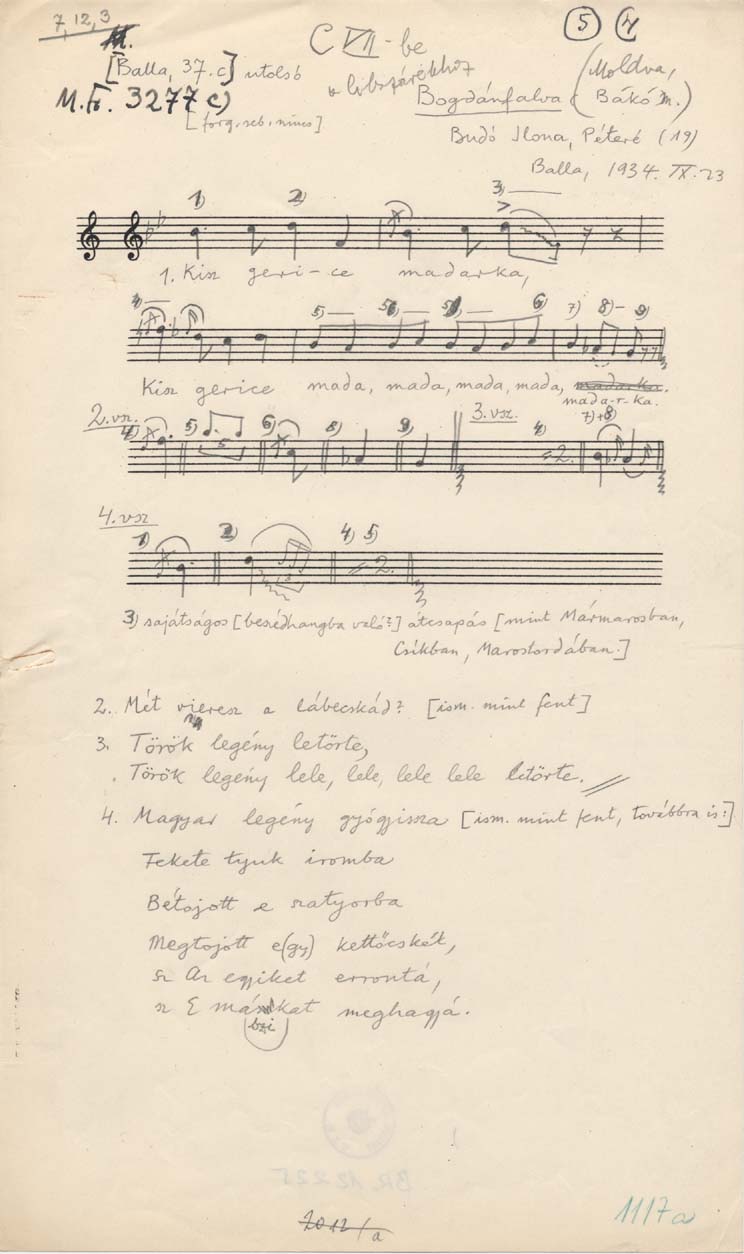 7, 12, 3
C VII-be
5 4
[Balla, 37. c] utolsó
a
M.F. 3277 c)
[forg. seb. nincs]
Bogdánfalva (Moldva, Bákó m.)
Budó Ilona, Péteré (19)
Balla, 1934. IX. 23
1) 2) 3)
1. Kisz geri-ce madarka,
4) 5) 5) 5) 6) 7) 8) 9)
Kisz gerice mada, mada, mada, mada, madarka.
mada-r-ka.
2. vsz. 3. vsz.
4) 5) 6) 8) 9) 4) =2. 7)+8)
5
4. vsz
1) 2) 4) 5)
=2.
3) sajátságos [beszédhangba való?] átcsapás [mint Mármarosban,
Csíkban, Marostordában.]
2. Mét vieresz a lábecskád? [ism. mint fent]
3. Török legény letörte,
Török legény lele, lele, lele lele letörte.
4. Magyar legény gyógyissza [ism. mint fent, továbbra is:]
Fekete tyuk iromba
Bétojott e szatyorba
Megtojott e(gy) kettőcskét,
sz Az egyiket errontá,
sz E másikat meghagyá.
bzi
BR. 12 225
2012/a
1117a